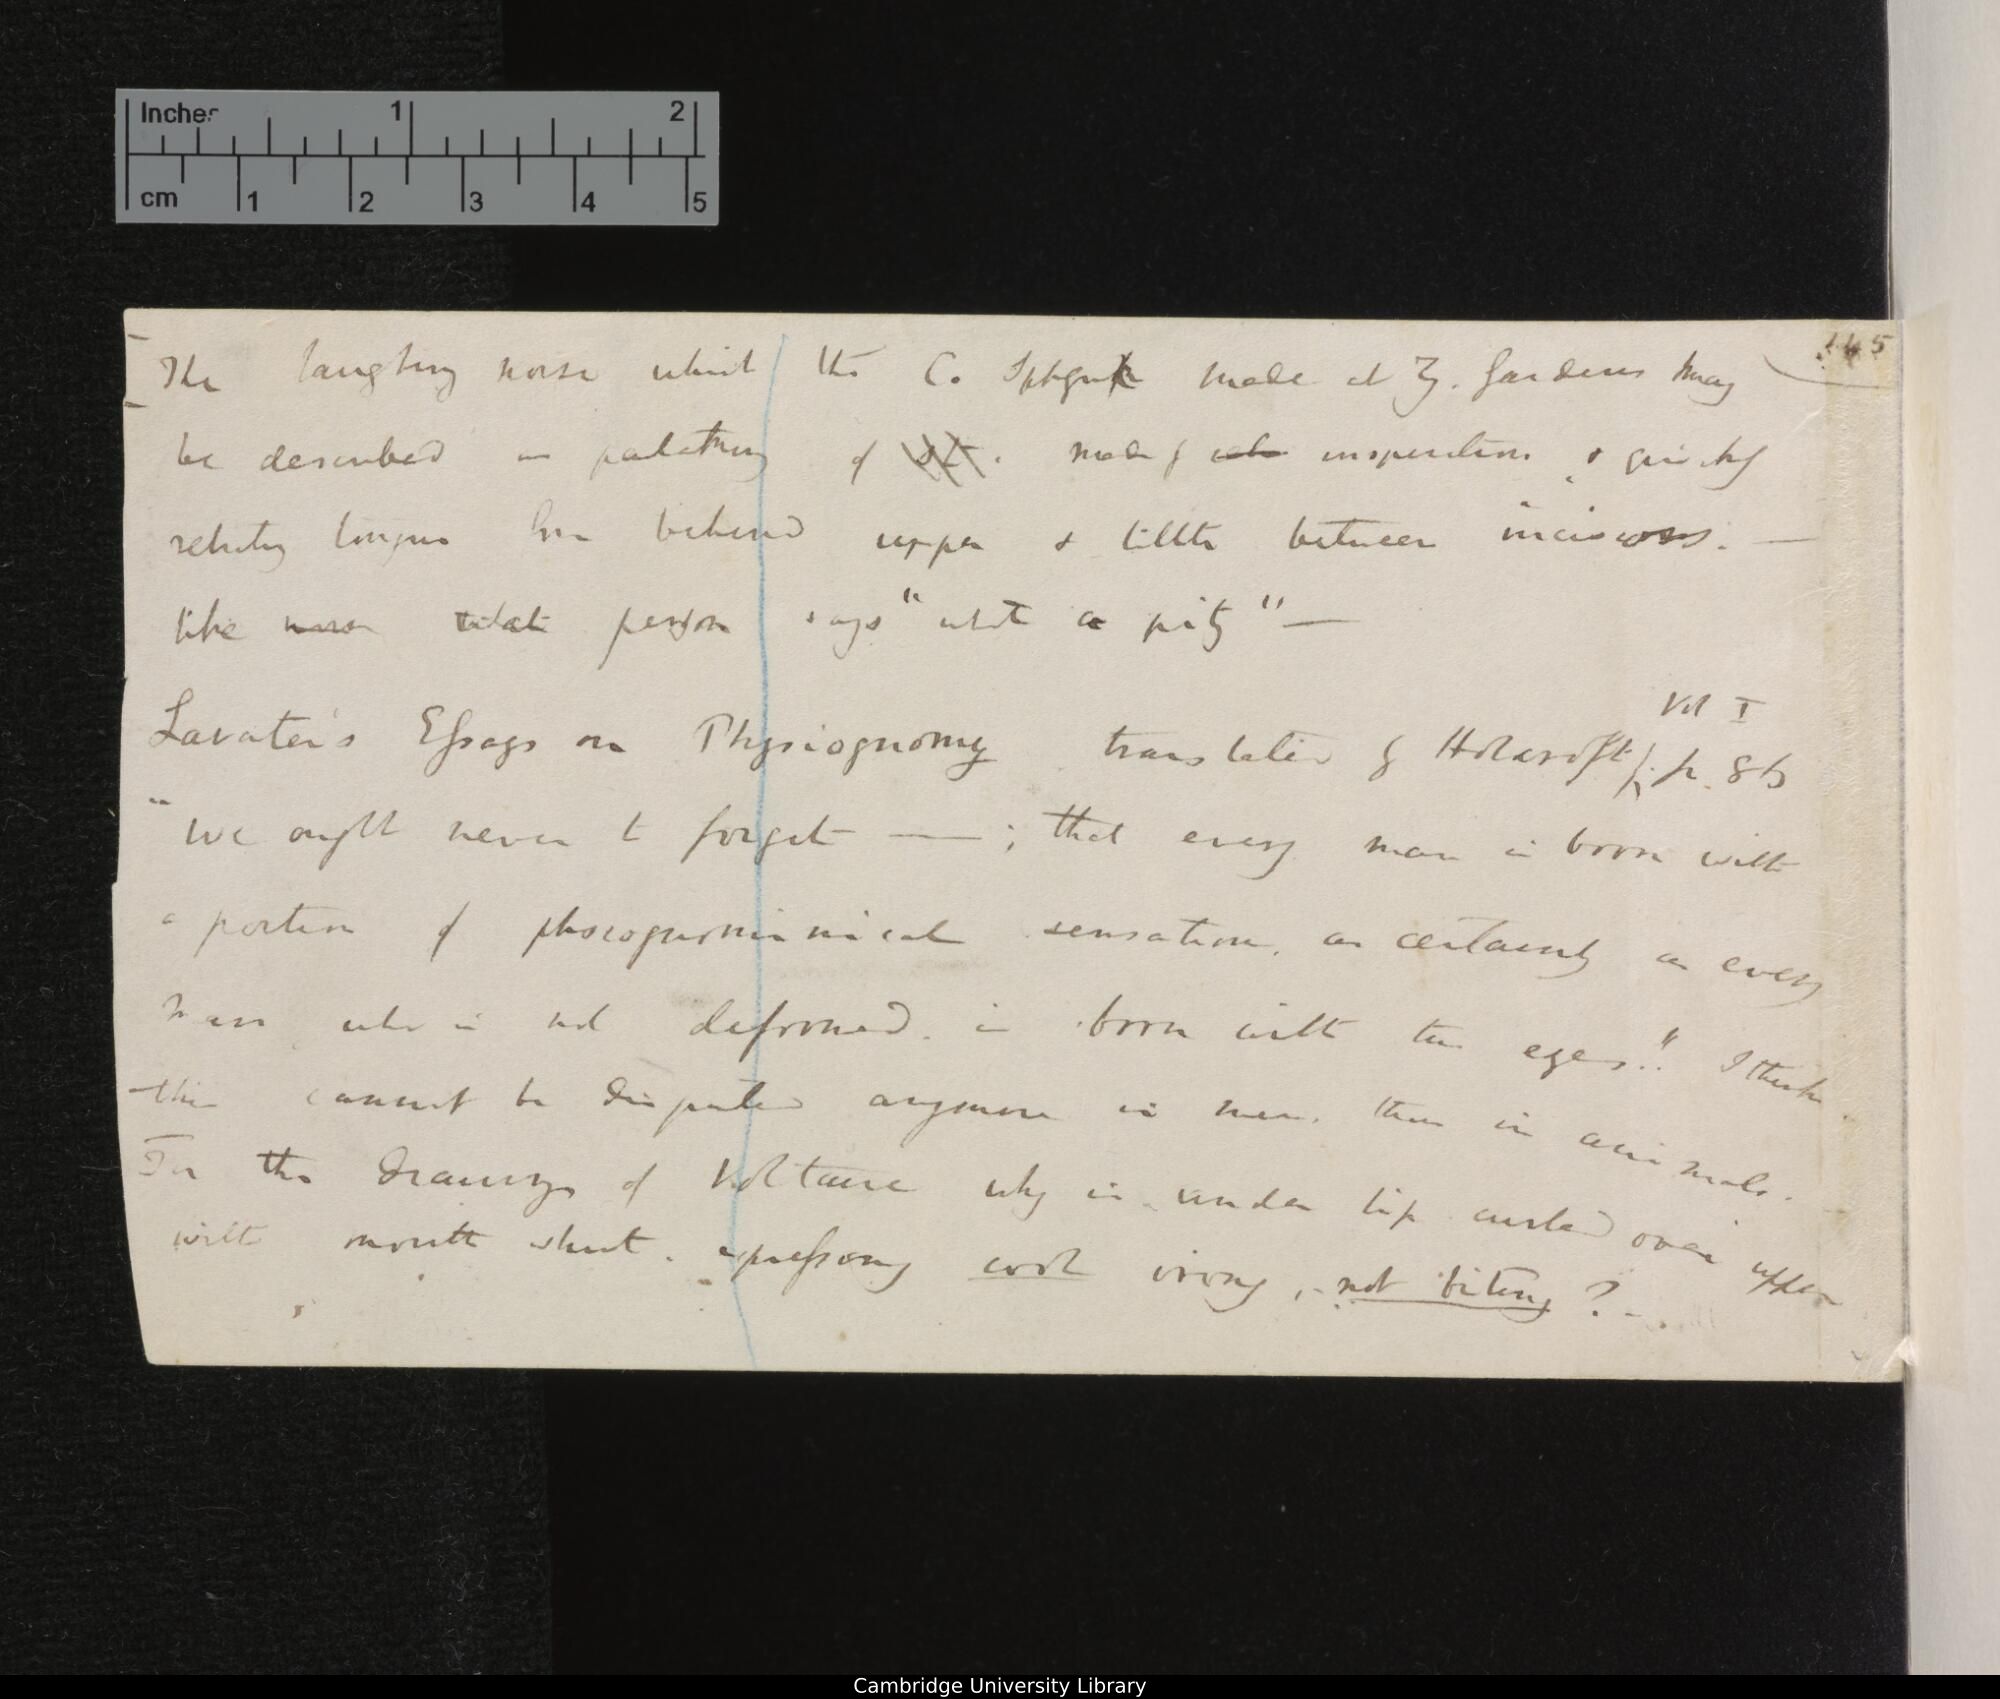 Inches 1 2
cm 1 2 3 4 5
145
The laughing noise which the C. Sphynx made at Z. Gardens may
be described as palatting of made by inspiration & quickly
retracting tongue from behind upper & little between incisors. —
like person says "what a pity" —
Vol I
Lavater's Essays on Physiognomy translated by Holcroft, p. 86
"We ought never to forget —— ; that every man is born with
a portion of phsiognominical sensation, as certainly as every
man who is not deformed, is born with two eyes." I think
this cannot be disputed anymore in men, than in animals.
In the drawings of Voltaire why is under lip curled over upper
with mouth shut, expressing cool irony, not biting? —
Cambridge University Library